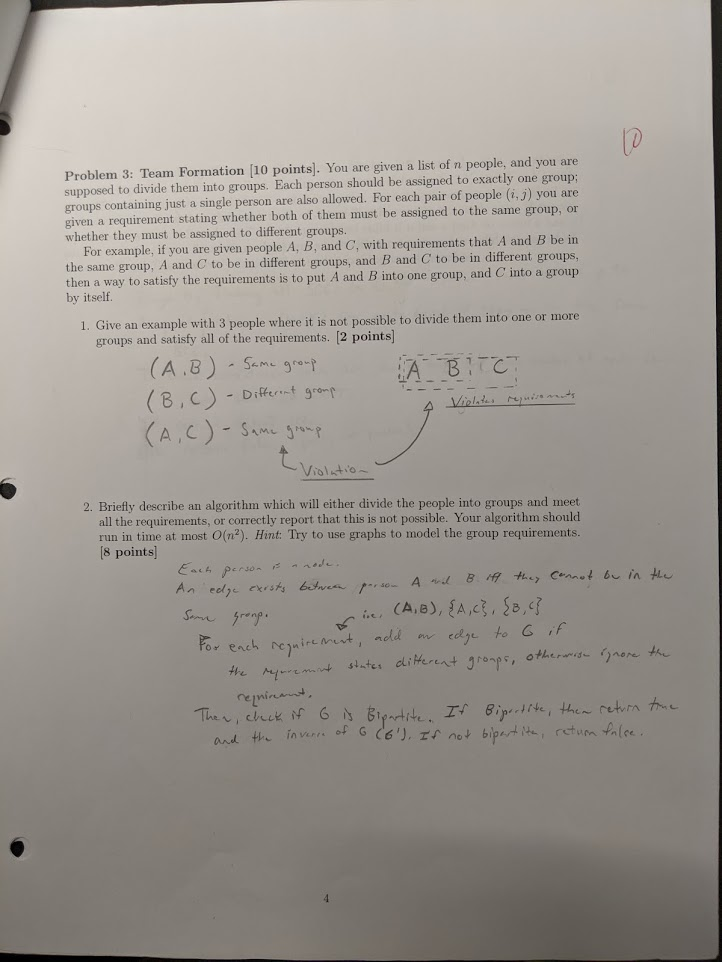 10
Problem 3: Team Formation [10 points]. You are given a list of n people, and you are
supposed to divide them into groups. Each person should be assigned to exactly one group;
groups containing just a single person are also allowed. For each pair of people (i, j) you are
given a requirement stating whether both of them must be assigned to the same group, or
whether they must be assigned to different groups.
For example, if you are given people A, B, and C, with requirements that A and B be in
the same group, A and C to be in different groups, and B and C to be in different groups,
then a way to satisfy the requirements is to put A and B into one group, and C into a group
by itself.
1. Give an example with 3 people where it is not possible to divide them into one or more
groups and satisfy all of the requirements. [2 points]
(A, B) - Same group
A B C
(B, C) - Different group
Violates requirements
(A, C) - Same group
Violation
2. Briefly describe an algorithm which will either divide the people into groups and meet
all the requirements, or correctly report that this is not possible. Your algorithm should
run in time at most O(n²). Hint: Try to use graphs to model the group requirements.
[8 points]
Each person is a node.
An edge exists between person A and B iff they cannot be in the
same group.
i.e. (A,B), {A,C}, {B,C}
For each requirement, add an edge to G if
the requirement states different groups, otherwise ignore the
requirement.
Then, check if G is Bipartite. If Bipartite, then return true
and the inverse of G (G'). If not bipartite, return false.
4